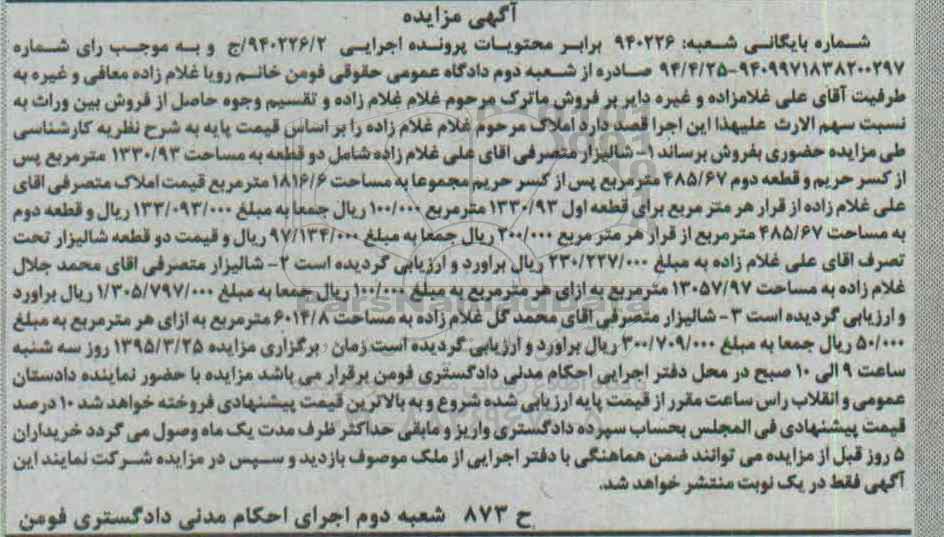 آگهی مزایده
شماره بایگانی شعبه: ۹۴۰۲۲۶ برابر محتویات پرونده اجرایی ۹۴۰۲۲۶/۲/ج و به موجب رای شماره
۹۴۰۹۹۷۱۸۳۸۲۰۰۲۹۷-۹۴/۴/۲۵ صادره از شعبه دوم دادگاه عمومی حقوقی فومن خانم رویا غلام زاده معافی و غیره به
طرفیت آقای علی غلامزاده و غیره دایر بر فروش ماترک مرحوم غلام غلام زاده و تقسیم وجوه حاصل از فروش بین وراث به
نسبت سهم الارث علیهذا این اجرا قصد دارد املاک مرحوم غلام غلام زاده را بر اساس قیمت پایه به شرح نظریه کارشناسی
طی مزایده حضوری بفروش برساند ۱- شالیزار متصرفی اقای علی غلام زاده شامل دو قطعه به مساحت ۱۳۳۰/۹۳ مترمربع پس
از کسر حریم و قطعه دوم ۴۸۵/۶۷ مترمربع پس از کسر حریم مجموعا به مساحت ۱۸۱۶/۶ مترمربع قیمت املاک متصرفی اقای
علی غلام زاده از قرار هر متر مربع برای قطعه اول ۱۳۳۰/۹۳ مترمربع ۱۰۰/۰۰۰ ریال جمعا به مبلغ ۱۳۳/۰۹۳/۰۰۰ ریال و قطعه دوم
به مساحت ۴۸۵/۶۷ مترمربع از قرار هر متر مربع ۲۰۰/۰۰۰ ریال جمعا به مبلغ ۹۷/۱۳۴/۰۰۰ ریال و قیمت دو قطعه شالیزار تحت
تصرف اقای علی غلام زاده به مبلغ ۲۳۰/۲۲۷/۰۰۰ ریال براورد و ارزیابی گردیده است ۲- شالیزار متصرفی اقای محمد جلال
غلام زاده به مساحت ۱۳۰۵۷/۹۷ مترمربع به ازای هر مترمربع به مبلغ ۱۰۰/۰۰۰ ریال جمعا به مبلغ ۱/۳۰۵/۷۹۷/۰۰۰ ریال براورد
و ارزیابی گردیده است ۳- شالیزار متصرفی اقای محمد گل غلام زاده به مساحت ۶۰۱۴/۸ مترمربع به ازای هر مترمربع به مبلغ
۵۰/۰۰۰ ریال جمعا به مبلغ ۳۰۰/۷۰۹/۰۰۰ ریال براورد و ارزیابی گردیده است زمان برگزاری مزایده ۱۳۹۵/۳/۲۵ روز سه شنبه
ساعت ۹ الی ۱۰ صبح در محل دفتر اجرایی احکام مدنی دادگستری فومن برقرار می باشد مزایده با حضور نماینده دادستان
عمومی و انقلاب راس ساعت مقرر از قیمت پایه ارزیابی شده شروع و به بالاترین قیمت پیشنهادی فروخته خواهد شد ۱۰ درصد
قیمت پیشنهادی فی المجلس بحساب سپرده دادگستری واریز و مابقی حداکثر ظرف مدت یک ماه وصول می گردد خریداران
۵ روز قبل از مزایده می توانند ضمن هماهنگی با دفتر اجرایی از ملک موصوف بازدید و سپس در مزایده شرکت نمایند این
آگهی فقط در یک نوبت منتشر خواهد شد.
ح ۸۷۳ شعبه دوم اجرای احکام مدنی دادگستری فومن